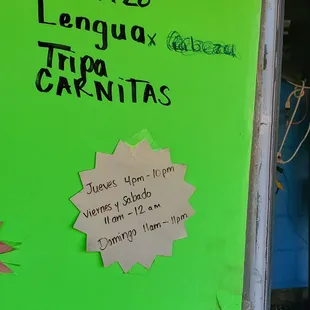 Lengua x
Tripa
CARNITAS
Jueves 4pm-10pm
Viernes y Sabado
11am-12am
Domingo 11am-11pm